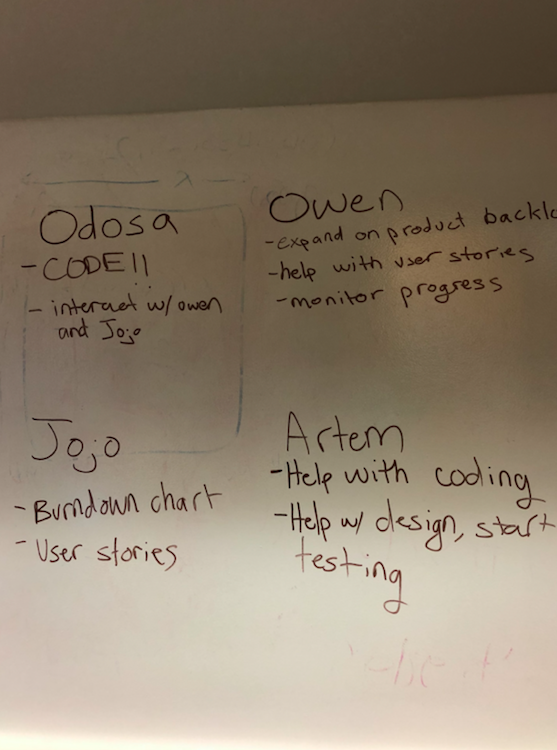 Odosa
- CODE!!
- interact w/ owen
and Jojo
Owen
- expand on product backlo
- help with user stories
- monitor progress
Jojo
- Burndown chart
- User stories
Artem
- Help with coding
- Help w/ design, start
testing